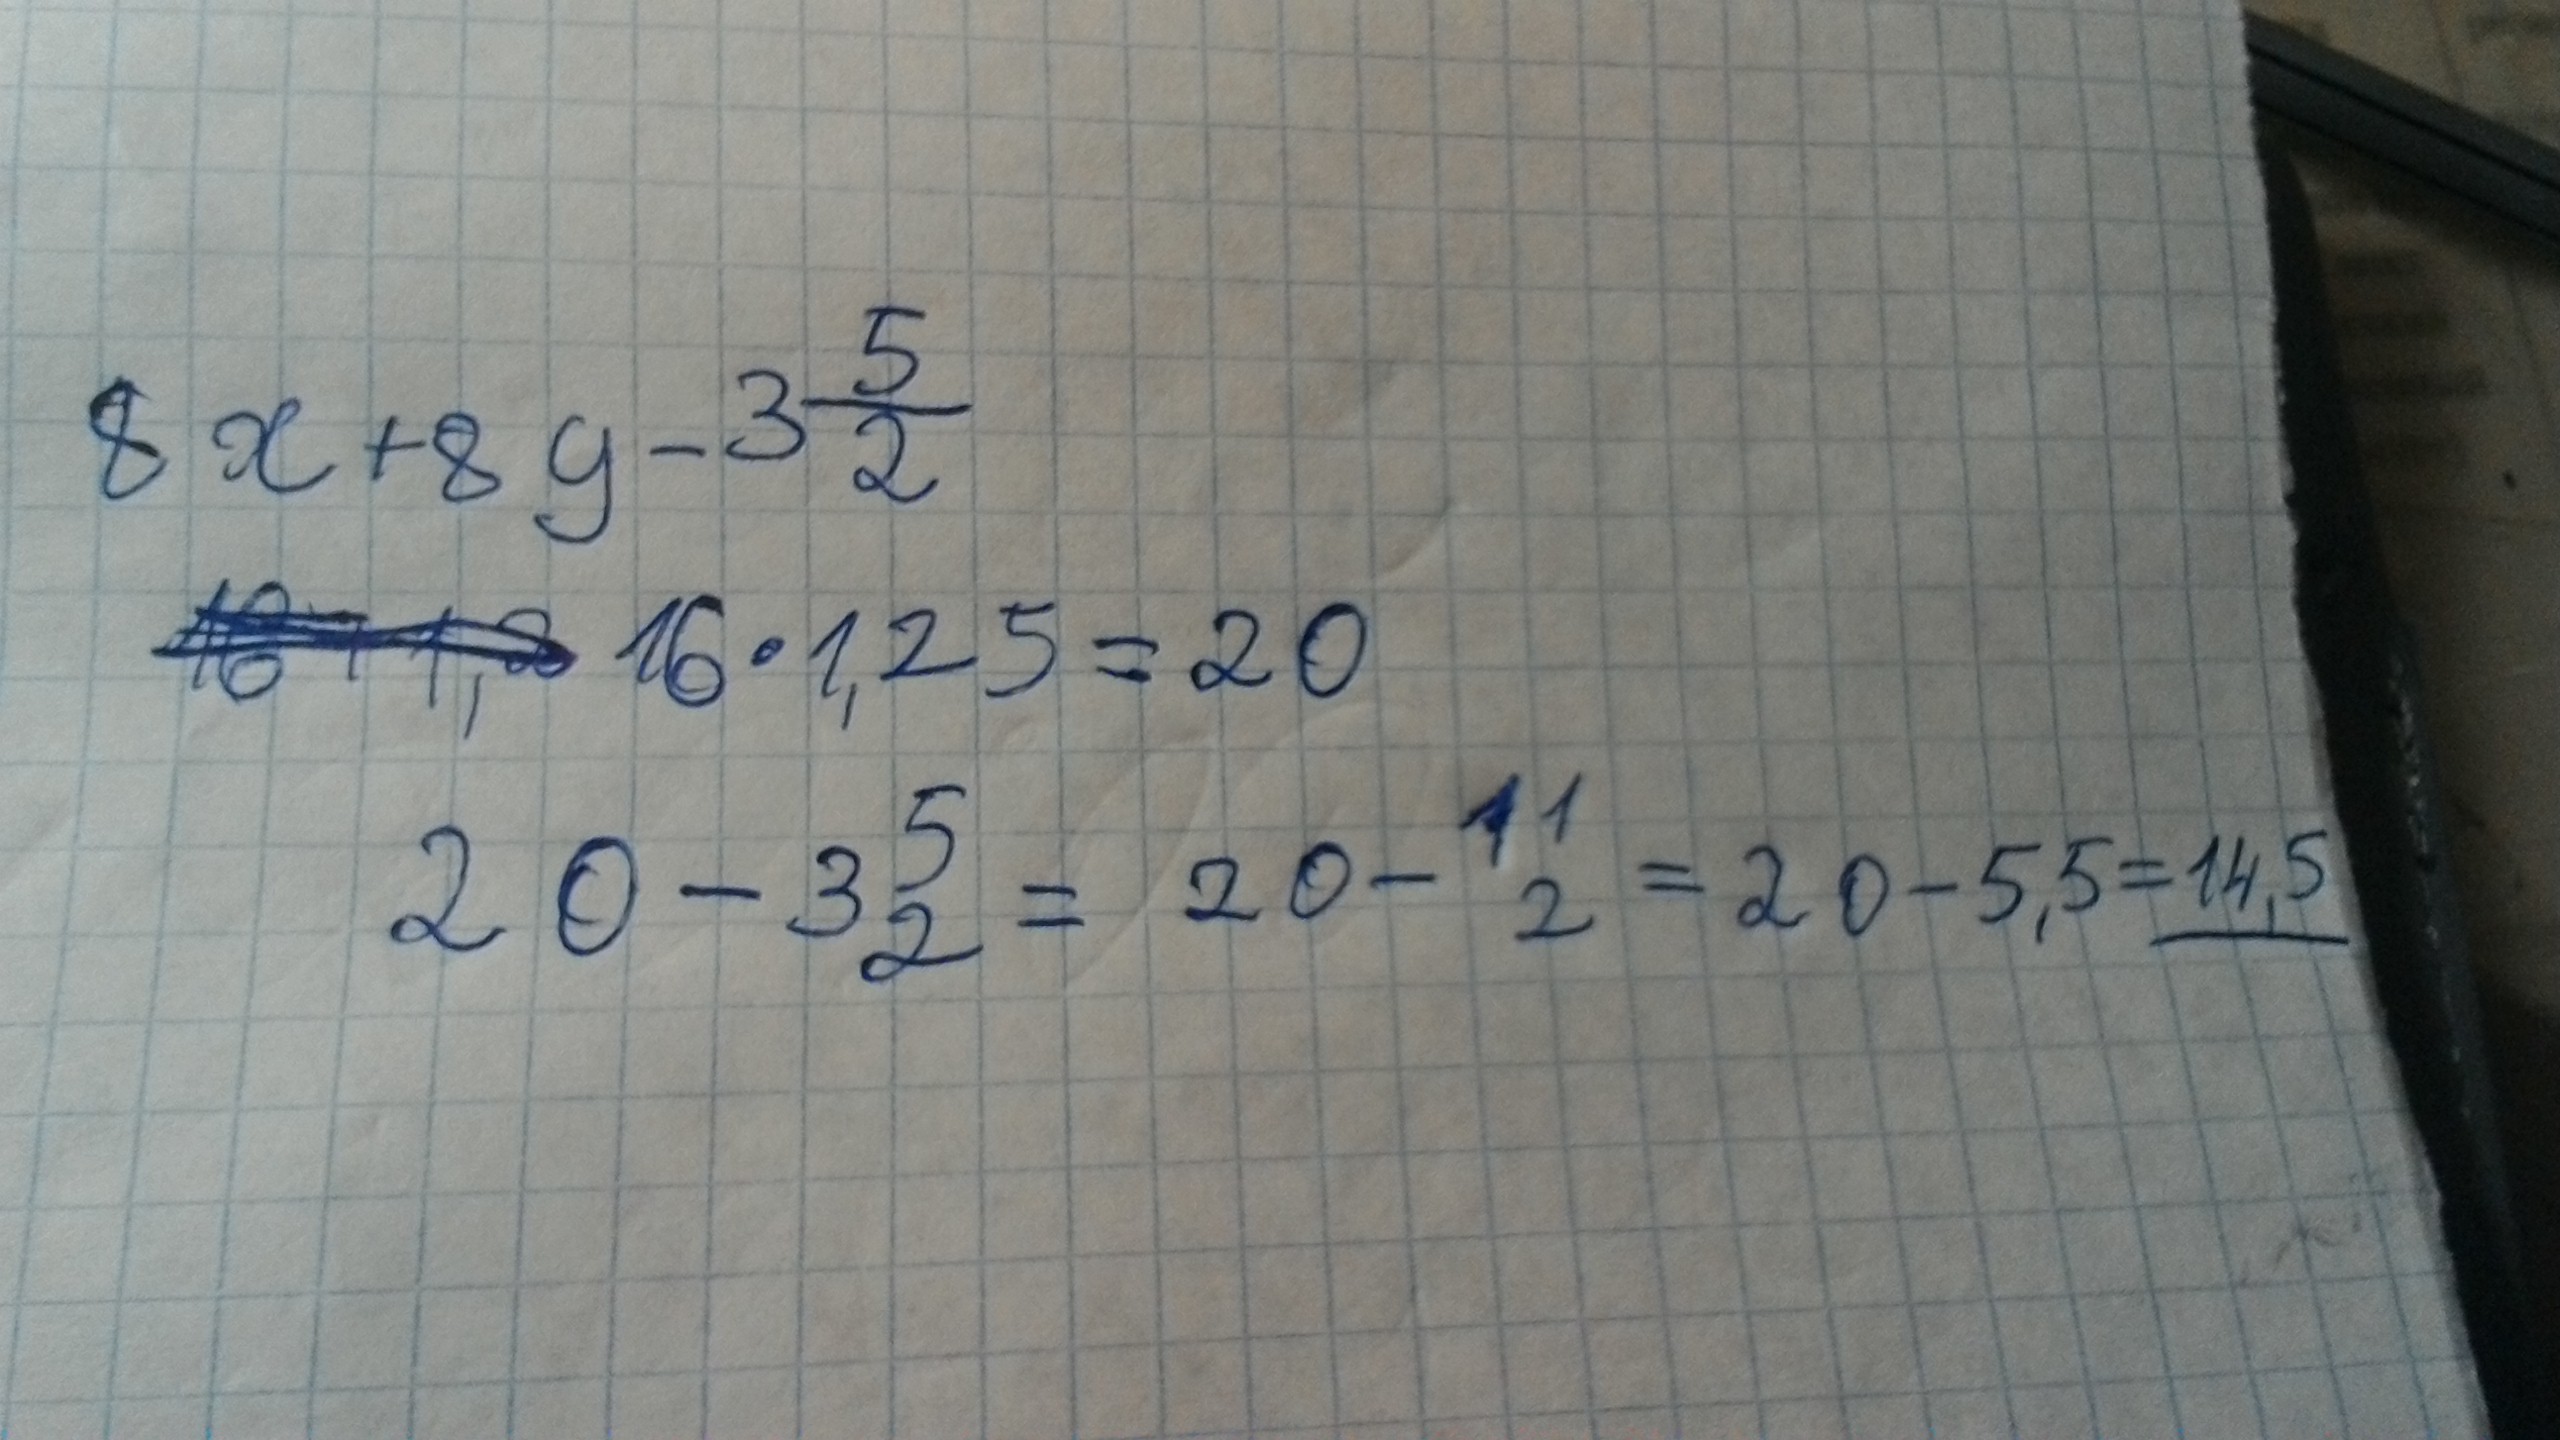 8x+8y-3 5/2
16·1,25=20
20-3 5/2 = 20-11/2 = 20-5,5=14,5